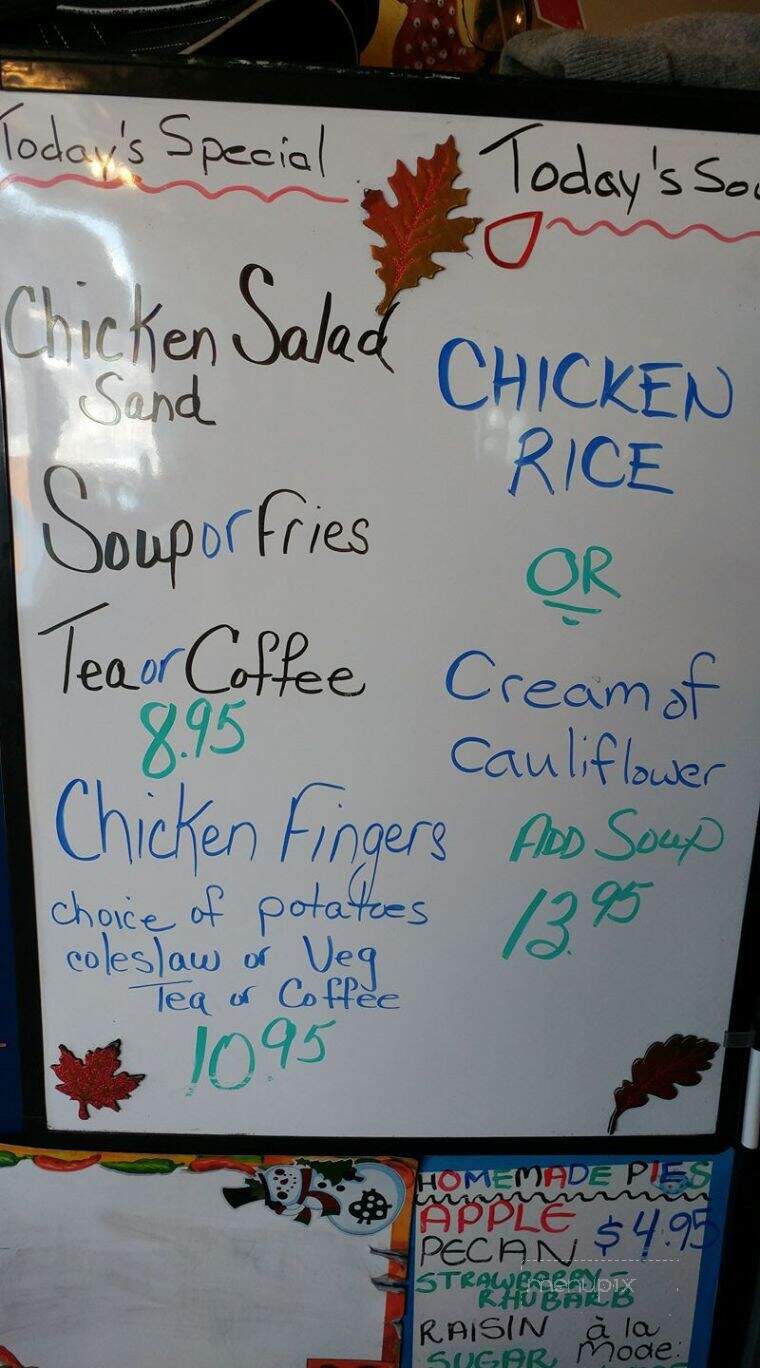 Today's Special
Chicken Salad
Sand
Soup or Fries
Tea or Coffee
8.95
Chicken Fingers
choice of potatoes
coleslaw or Veg
Tea or Coffee
10.95
Today's Sou
CHICKEN
RICE
OR
Cream of
Cauliflower
ADD SOUP
13.95
HOMEMADE PIES
APPLE
PECAN $4.95
STRAWBERRY-
RHUBARB
RAISIN à la
SUGAR Mode:
menupix